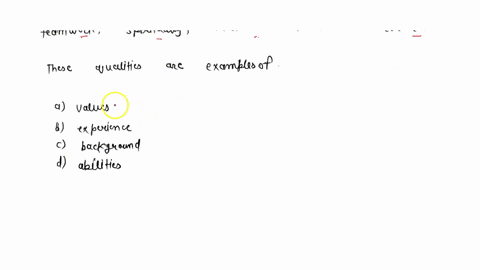 teamwork,
These qualities are examples of
a) values
b) experience
c) background
d) abilities